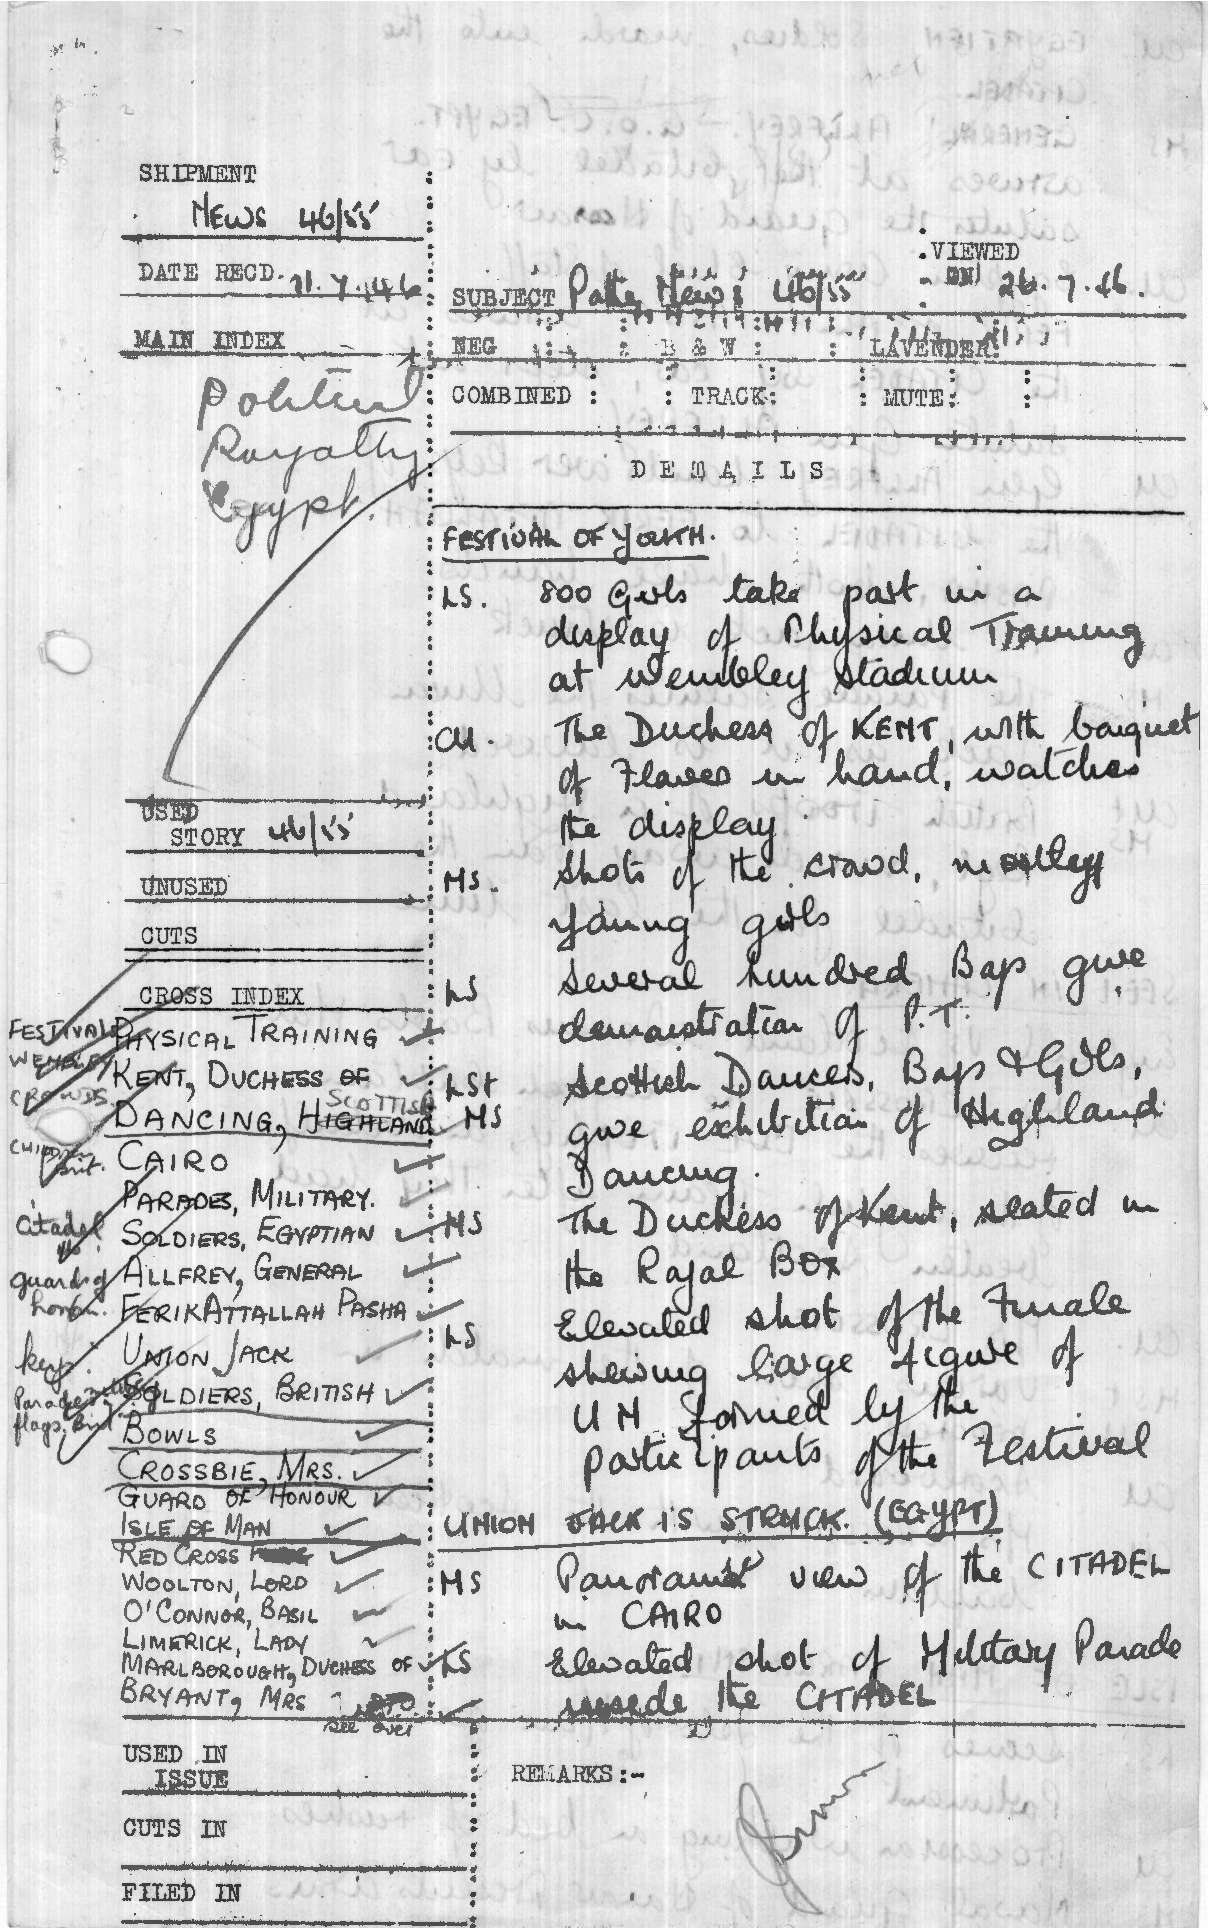 SHIPMENT
NEWS 46/55
DATE RECD.
MAIN INDEX
Political
Royalty
Egypt.
VIEWED
ON 26.7.46.
SUBJECT Pathe News 46/55
NEG : : B & W : : LAVENDER:
COMBINED : : TRACK: : MUTE: :
DETAILS
FESTIVAL OF YOUTH.
LS. 800 Girls take part in a
display of Physical Training
at Wembley Stadium
CU. The Duchess of KENT, with bouquet
of Flowers in hand, watches
the display.
MS. Shots of the crowd, mostley
young girls
LS Several hundred Boys give
demonstration of P.T.
LS+ Scottish Dancers, Boys & Girls,
MS give exhibition of Highland
Dancing.
MS The Duchess of Kent, seated in
the Royal BOX
LS Elevated shot of the Finale
shewing large figure of
UN formed by the
participants of the Festival
UNION JACK IS STRUCK. (EGYPT)
MS Panoramic view of the CITADEL
in CAIRO
LS Elevated shot of Military Parade
inside the CITADEL
USED
STORY 46/55
UNUSED
CUTS
CROSS INDEX
FESTIVALS
WEMBLEY
CROWDS.
PHYSICAL TRAINING
KENT, DUCHESS OF
SCOTTISH
DANCING, HIGHLAND
CAIRO
PARADES, MILITARY.
citadel
SOLDIERS, EGYPTIAN
guards of
honour.
ALLFREY, GENERAL
FERIK ATTALLAH PASHA
keys.
UNION JACK
SOLDIERS, BRITISH
flags. Brit
BOWLS
CROSSBIE, MRS.
GUARD OF HONOUR
ISLE OF MAN
RED CROSS
WOOLTON, LORD
O'CONNOR, BASIL
LIMERICK, LADY
MARLBOROUGH, DUCHESS OF
BRYANT, MRS
PTO
see over
USED IN
ISSUE
CUTS IN
FILED IN
REMARKS:-